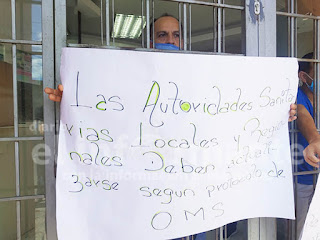 Las Autoridades Sanita
rias Locales y Regio
nales Deben actuali
zarse segun protocolo de
OMS